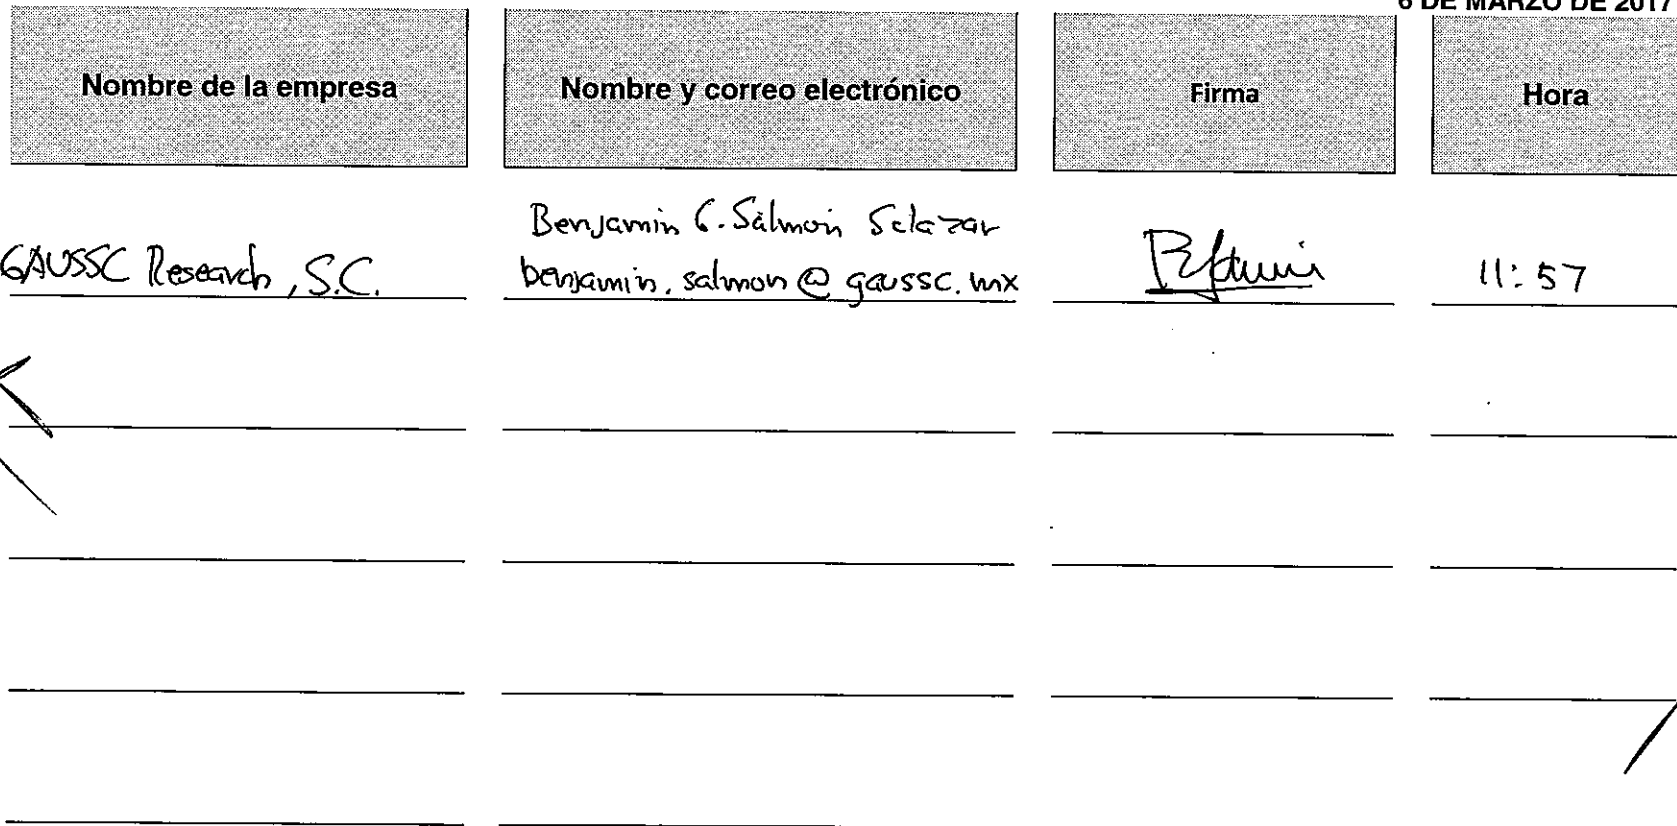 6 DE MARZO DE 2017
Nombre de la empresa
Nombre y correo electrónico
Firma
Hora
GAUSSC Research, S.C.
Benjamin G. Salmon Salazar
benjamin.salmon@gaussc.mx
11:57